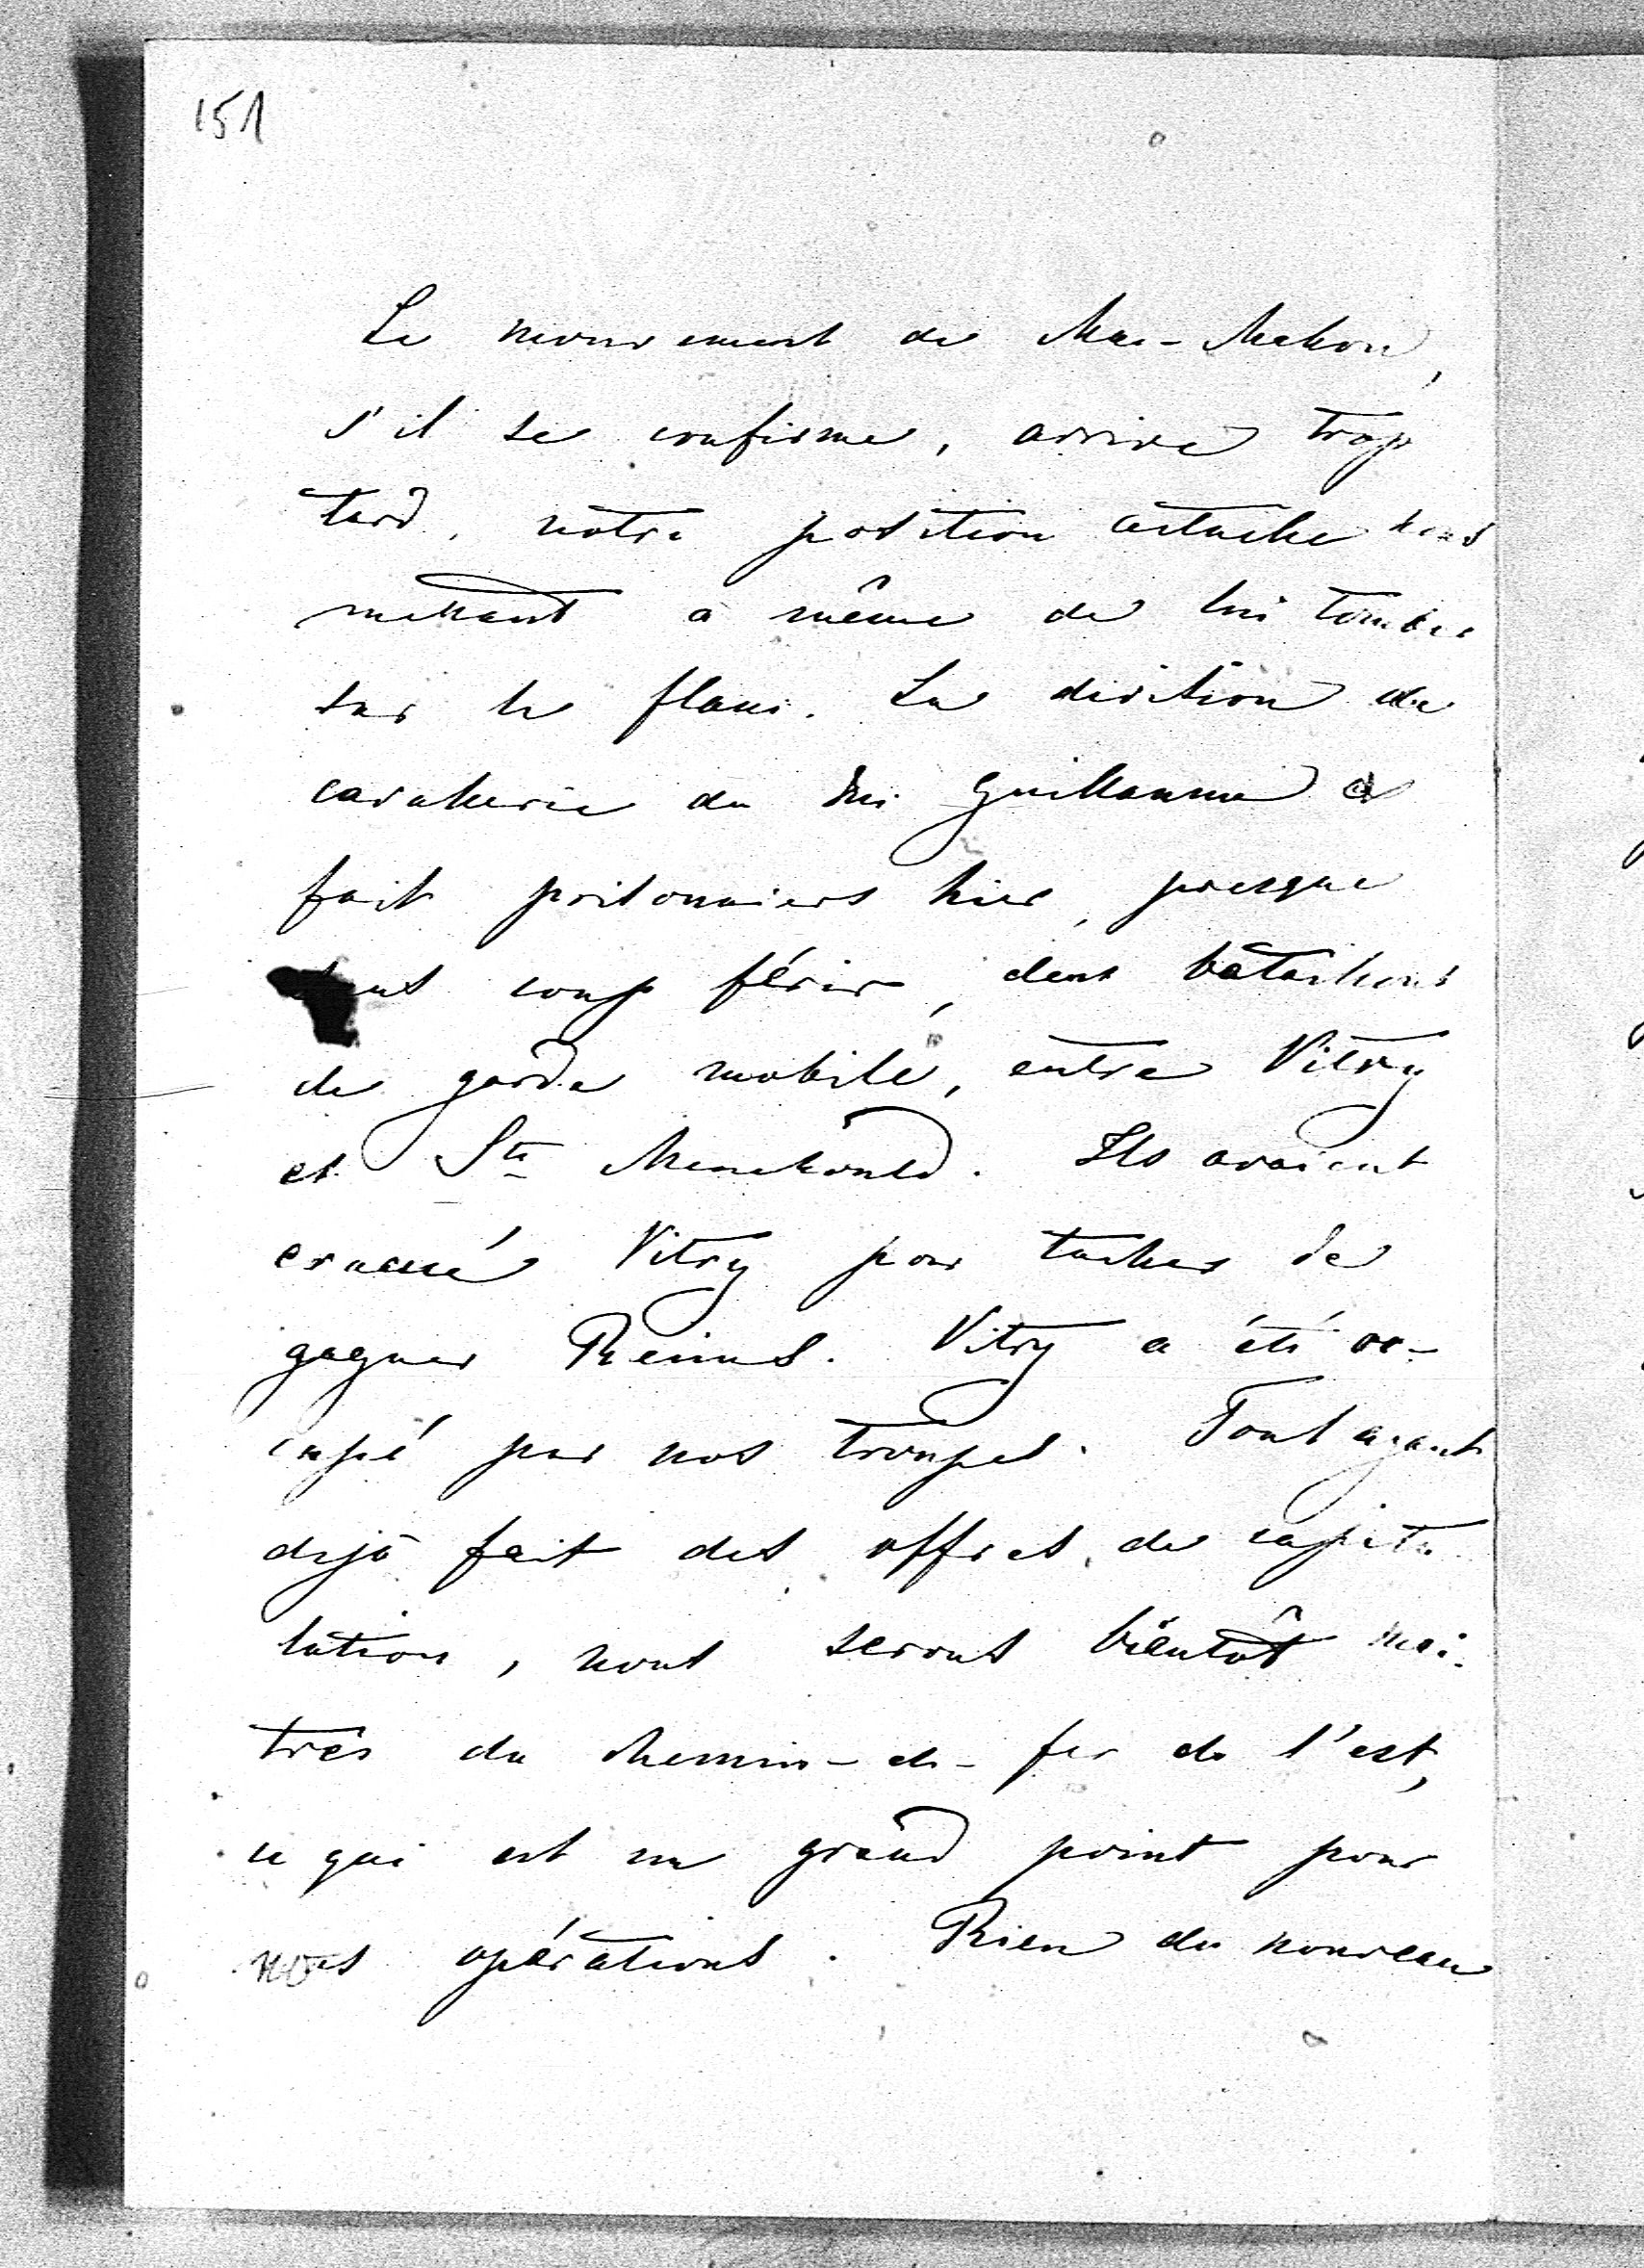 151
Le mouvement de Mac-Mahon,
s'il se confirme, arrive trop
tard, notre position actuelle nous
mettant à même de lui tomber
sur le flanc. La division de
cavalerie du duc Guillaume a
fait prisonniers hier, presque
sans coup férir, deux bataillons
de garde mobile, entre Vitry
et Ste Menehould. Ils avaient
evacué Vitry pour tacher de
gagner Reims. Vitry a été oc-
cupé par nos troupes. Toul ayant
dejà fait des offres de capitu
lation, nous serons bientôt mai-
tres du chemin-de-fer de l'est,
ce qui est un grand point pour
nos opérations. Rien de nouveau